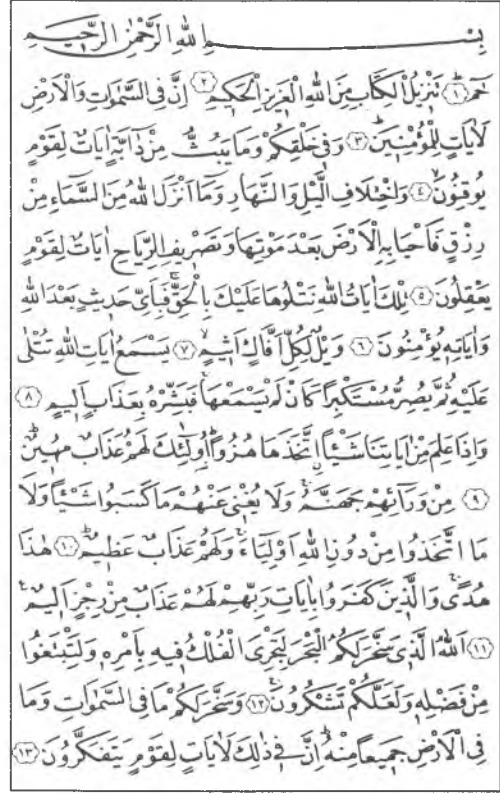 بِسْمِ اللهِ الرَّحْمٰنِ الرَّحِيمِ
حٰمۤ ﴿١﴾ تَنْزِيلُ الْكِتَابِ مِنَ اللهِ الْعَزِيزِ الْحَكِيمِ ﴿٢﴾ اِنَّ فِى السَّمٰوَاتِ وَالْاَرْضِ
لَاٰيَاتٍ لِلْمُؤْمِنِينَ ﴿٣﴾ وَفِى خَلْقِكُمْ وَمَا يَبُثُّ مِنْ دَٓابَّةٍ اٰيَاتٌ لِقَوْمٍ
يُوقِنُونَ ﴿٤﴾ وَاخْتِلَافِ الَّيْلِ وَالنَّهَارِ وَمَٓا اَنْزَلَ اللهُ مِنَ السَّمَٓاءِ مِنْ
رِزْقٍ فَاَحْيَا بِهِ الْاَرْضَ بَعْدَ مَوْتِهَا وَتَصْرِيفِ الرِّيَاحِ اٰيَاتٌ لِقَوْمٍ
يَعْقِلُونَ ﴿٥﴾ تِلْكَ اٰيَاتُ اللهِ نَتْلُوهَا عَلَيْكَ بِالْحَقِّ فَبِاَىِّ حَدِيثٍ بَعْدَ اللهِ
وَاٰيَاتِهِ يُؤْمِنُونَ ﴿٦﴾ وَيْلٌ لِكُلِّ اَفَّاكٍ اَثِيمٍ ﴿٧﴾ يَسْمَعُ اٰيَاتِ اللهِ تُتْلٰى
عَلَيْهِ ثُمَّ يُصِرُّ مُسْتَكْبِرًا كَاَنْ لَمْ يَسْمَعْهَا فَبَشِّرْهُ بِعَذَابٍ اَلِيمٍ ﴿٨﴾
وَاِذَا عَلِمَ مِنْ اٰيَاتِنَا شَيْـًٔا اتَّخَذَهَا هُزُوًا اُو۬لٰٓئِكَ لَهُمْ عَذَابٌ مُهِينٌ
﴿٩﴾ مِنْ وَرَٓائِهِمْ جَهَنَّمُ وَلَا يُغْنِى عَنْهُمْ مَا كَسَبُوا شَيْـًٔا وَلَا
مَا اتَّخَذُوا مِنْ دُونِ اللهِ اَوْلِيَٓاءَ وَلَهُمْ عَذَابٌ عَظِيمٌ ﴿١٠﴾ هٰذَا
هُدًى وَالَّذِينَ كَفَرُوا بِاٰيَاتِ رَبِّهِمْ لَهُمْ عَذَابٌ مِنْ رِجْزٍ اَلِيمٌ
﴿١١﴾ اَللهُ الَّذِى سَخَّرَ لَكُمُ الْبَحْرَ لِتَجْرِىَ الْفُلْكُ فِيهِ بِاَمْرِهِ وَلِتَبْتَغُوا
مِنْ فَضْلِهِ وَلَعَلَّكُمْ تَشْكُرُونَ ﴿١٢﴾ وَسَخَّرَ لَكُمْ مَا فِى السَّمٰوَاتِ وَمَا
فِى الْاَرْضِ جَمِيعًا مِنْهُ اِنَّ فِى ذٰلِكَ لَاٰيَاتٍ لِقَوْمٍ يَتَفَكَّرُونَ ﴿١٣﴾